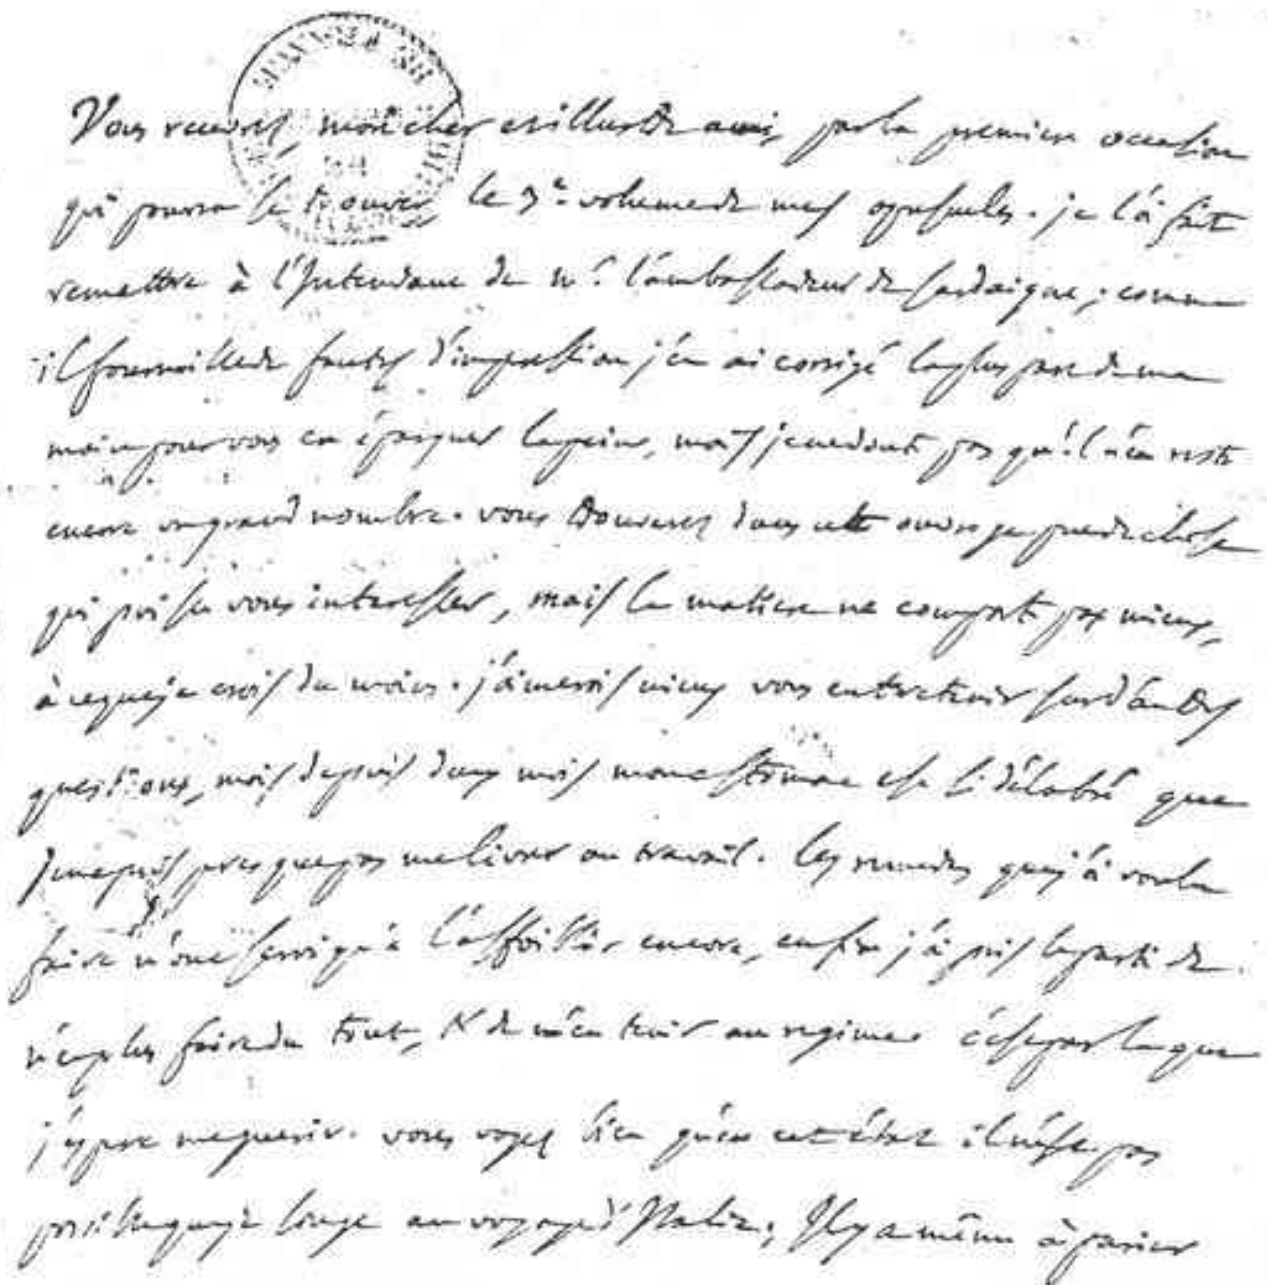 Vous recevrez, mon cher et illustre ami, par la premiere occasion
qui pourra se trouver, le 3e. volume de mes opuscules. je l'ai fait
remettre à l'Intendant de Mr. l'ambassadeur de Sardaigne; comme
il fourmille de fautes d'impression j'en ai corrigé la plus part de ma
main pour vous en épargner la peine, mais je ne doute pas qu'il n'en reste
encore un grand nombre. vous trouverez dans cet ouvrage peu de chose
qui puisse vous interesser, mais la matiere ne comporte pas mieux,
à ce que je crois du moins. j'aimerois mieux vous entretenir sur d'autres
questions, mais depuis deux mois mon estomac est si délabré que
je ne puis presque pas me livrer au travail. les remedes que j'ai voulu
faire n'ont servi qu'à l'affoiblir encore, enfin j'ai pris le parti de
n'en plus faire du tout, & de m'en tenir au regime. c'est par là que
j'espere me guerir. vous voyez bien qu'en cet état il n'est pas
possible que je songe au voyage d'Italie; Il y a même à parier